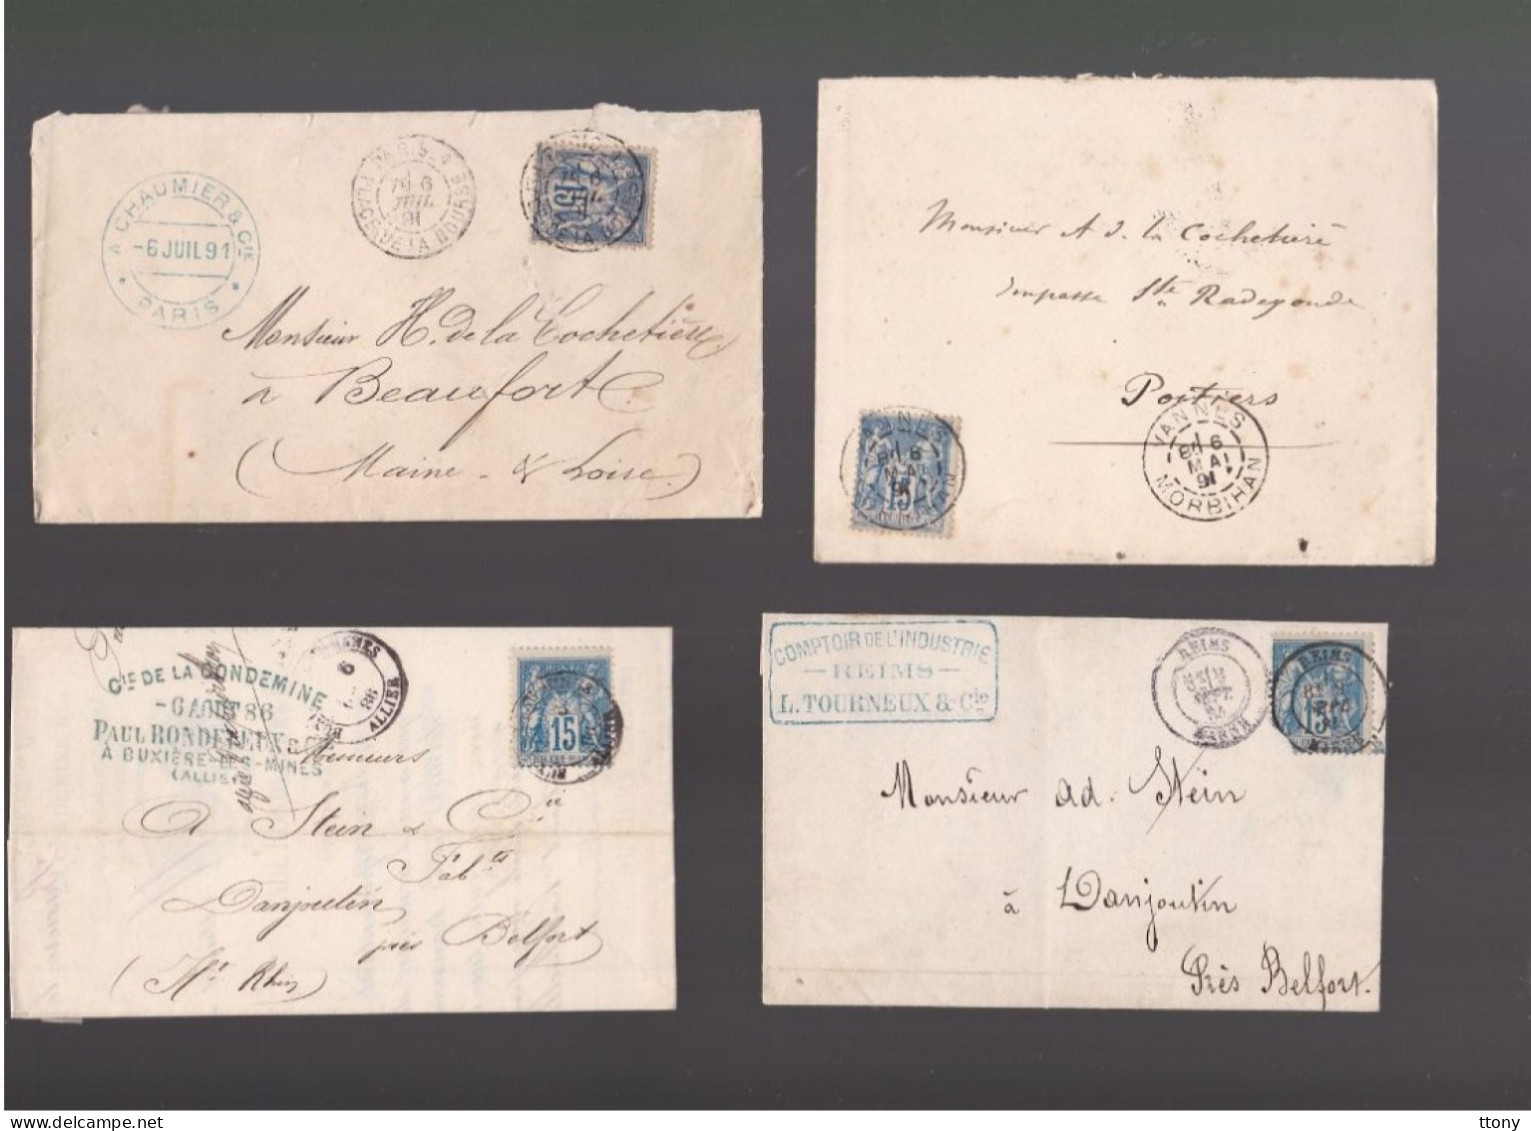 A CHAUMIER & CIE
-6 JUIL 91
PARIS
PARIS-4
7E 6
JUIL
91
PLACE DE LA BOURSE
15
Monsieur H. de la Cochetière
à Beaufort
(Maine-&-Loire)
Monsieur A d. la Cochetière
Impasse Ste Radegonde
Poitiers
VANNES
8E 6
MAI
91
MORBIHAN
VANNES
6
MAI
91
15
CIE DE LA CONDEMINE
-6 AOUT 86
PAUL RONDELEUX & CIE
A BUXIÈRE-LES-MINES
(ALLIER)
6
86
ALLIER
15
Messieurs
A Stein & Cie
Fabts
Danjoutin
près Belfort
(Ht Rhin)
COMPTOIR DE L'INDUSTRIE
-REIMS-
L. TOURNEUX & Cie
REIMS
MARNE
REIMS
MARNE
15
Monsieur Ad. Stein
à Danjoutin
Près Belfort.
ttony